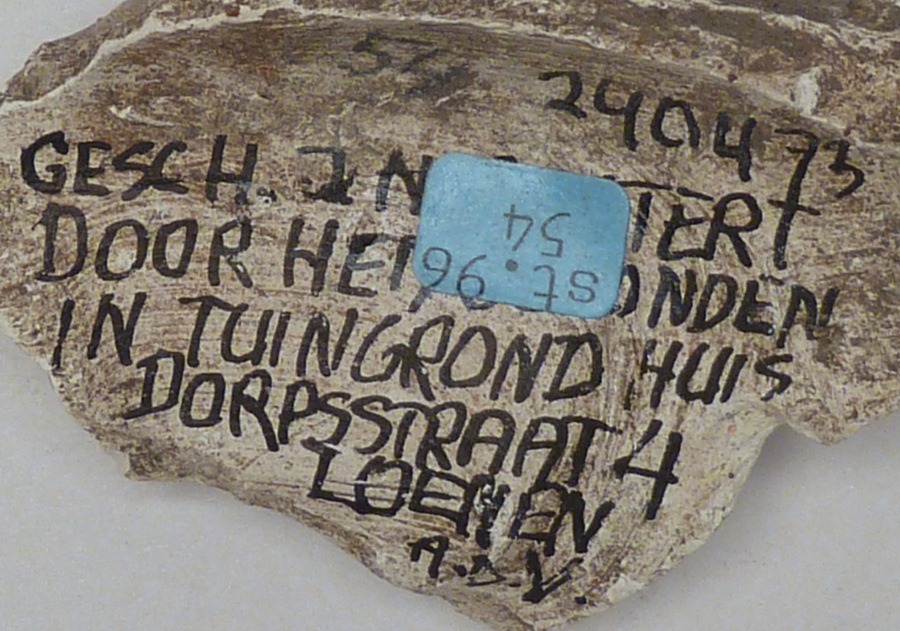 240473
GESCH. IN TER
DOOR HEI ONDEN
IN TUINGROND HUIS
DORPSSTRAAT 4
LOENEN
A.D.V.
st. 96
54